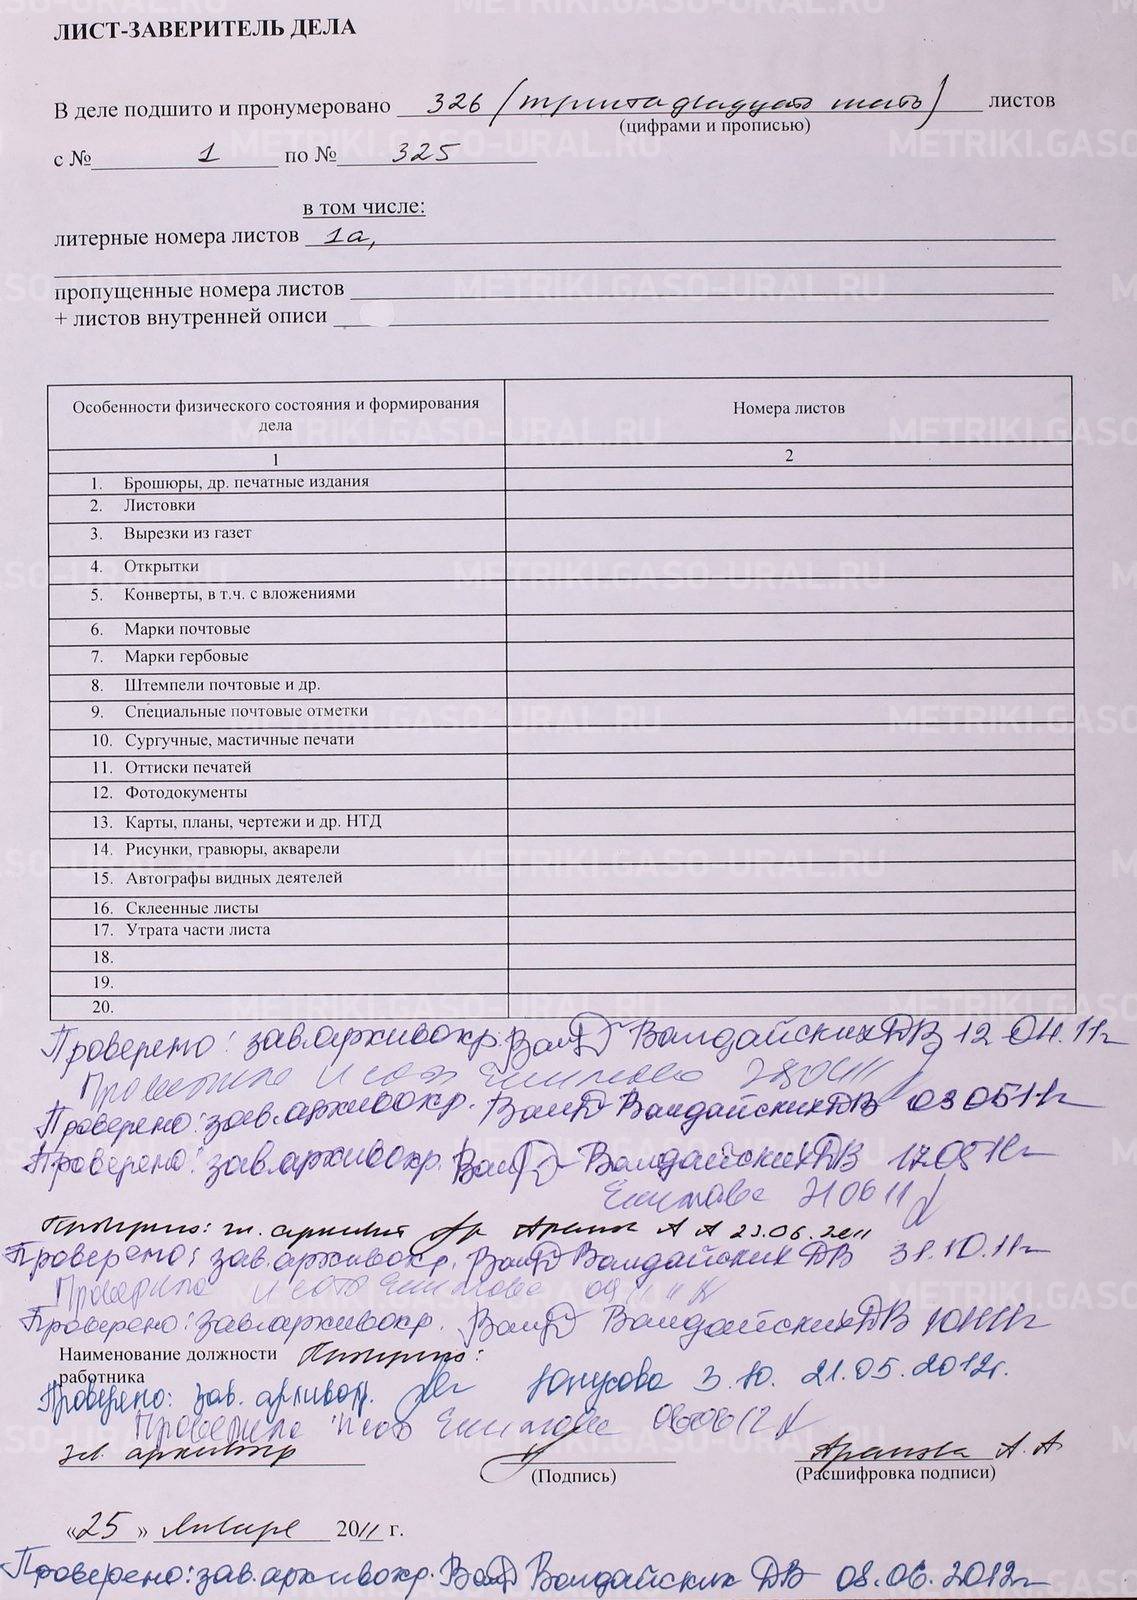 ЛИСТ-ЗАВЕРИТЕЛЬ ДЕЛА
В деле подшито и пронумеровано 326 (триста двадцать шесть) листов
(цифрами и прописью)
с № 1 по № 325
в том числе:
литерные номера листов 1а,
пропущенные номера листов
+ листов внутренней описи
Особенности физического состояния и формирования дела Номера листов
1 2
1. Брошюры, др. печатные издания
2. Листовки
3. Вырезки из газет
4. Открытки
5. Конверты, в т.ч. с вложениями
6. Марки почтовые
7. Марки гербовые
8. Штемпели почтовые и др.
9. Специальные почтовые отметки
10. Сургучные, мастичные печати
11. Оттиски печатей
12. Фотодокументы
13. Карты, планы, чертежи и др. НТД
14. Рисунки, гравюры, акварели
15. Автографы видных деятелей
16. Склеенные листы
17. Утрата части листа
18.
19.
20.
Проверено: зав.архивохр. Валдайских ДВ 12.04.11г
Проверила
Проверено: зав.архивохр. Валдайских ДВ 03 05 11г
Проверено: зав.архивохр. Валдайских ДВ 17.05 11г
21 06 11
Проверено: гл. архивист А А 23.06.2011
Проверено: зав.архивохр. Валдайских ДВ 31.10.11г
Проверила
Проверено: зав.архивохр. Валдайских ДВ
Наименование должности Проверено:
работника
Проверено: зав. архивохр. Юнусова З.Ю. 21.05.2012г.
Проверила 06 06 12
гл. архивист А. А
(Подпись) (Расшифровка подписи)
«25» января 2011 г.
Проверено: зав.архивохр. Валдайских ДВ 08.06.2012г
METRIKI.GASO-URAL.RU